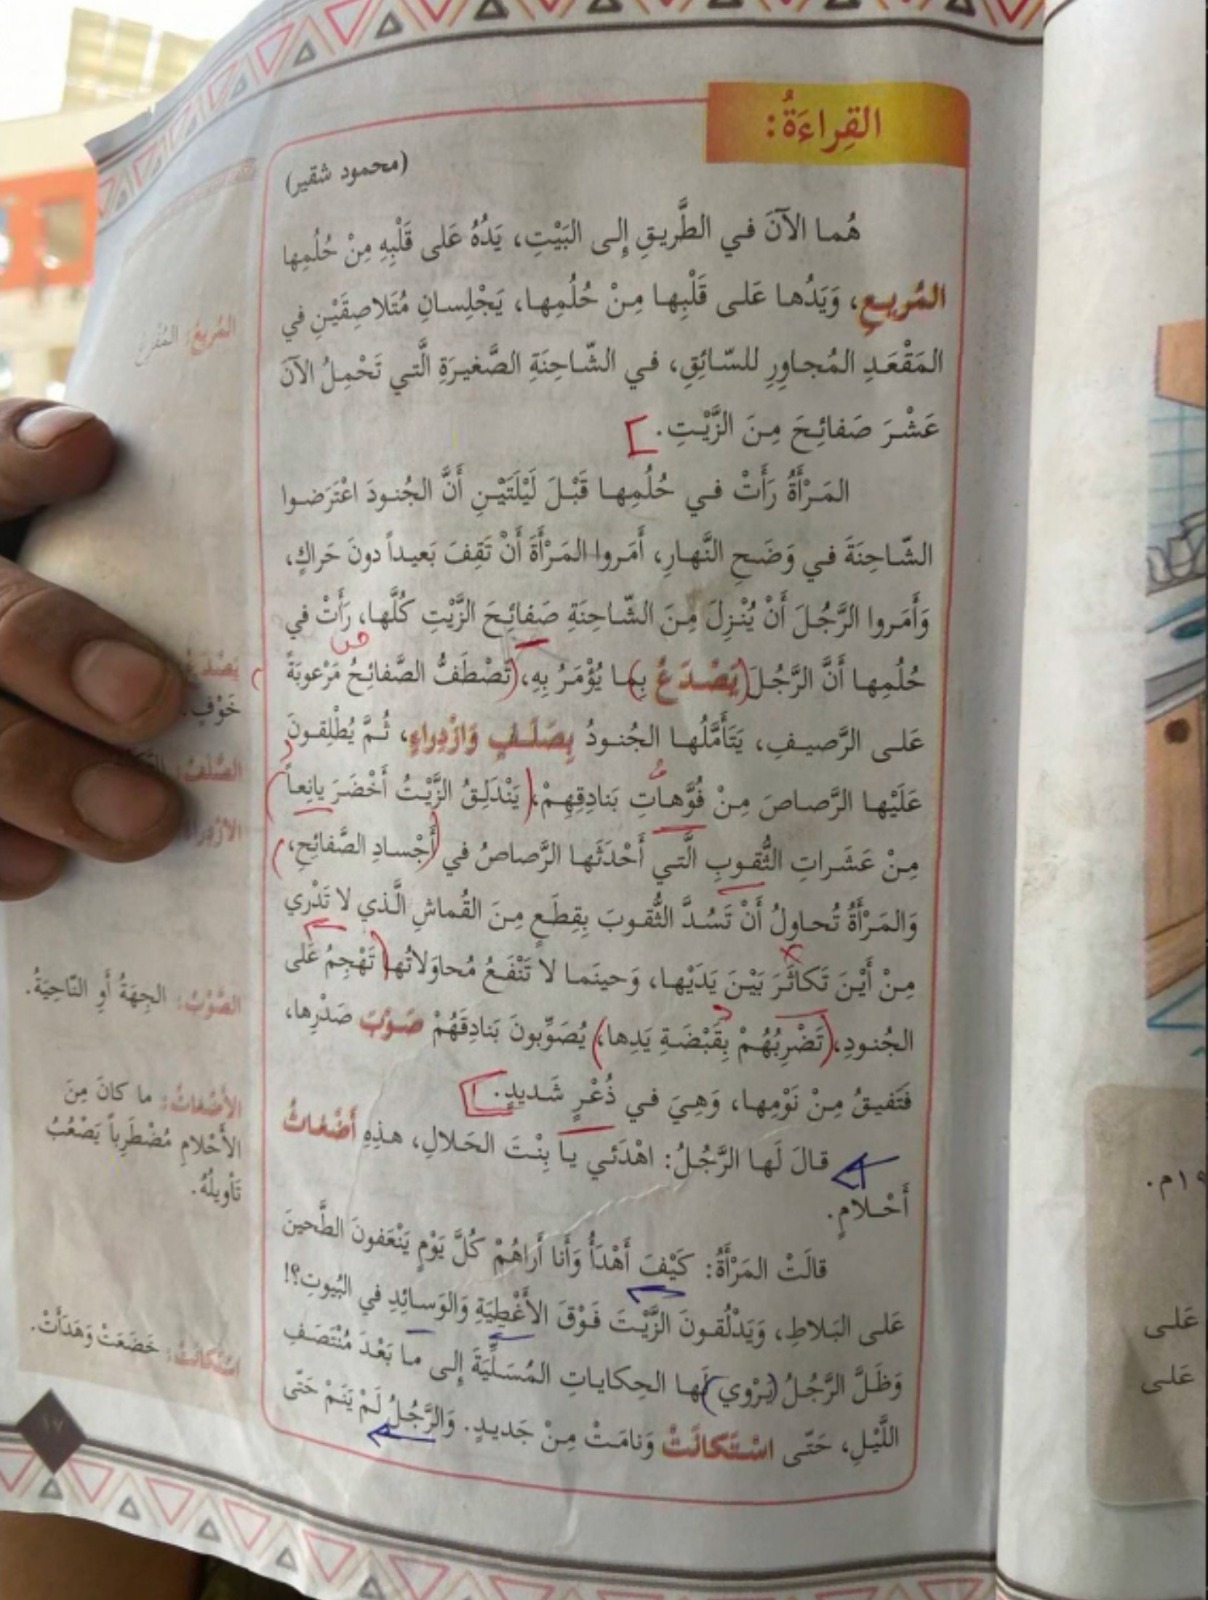 القِراءَةُ:
(محمود شقير)
هُما الآنَ في الطَّريقِ إِلى البَيْتِ، يَدُهُ عَلى قَلْبِهِ مِنْ حُلُمِها
المُريعِ، وَيَدُها عَلى قَلْبِها مِنْ حُلُمِها، يَجْلِسانِ مُتَلاصِقَيْنِ في
المَقْعَدِ المُجاوِرِ للسّائِقِ، في الشّاحِنَةِ الصَّغيرَةِ الَّتي تَحْمِلُ الآنَ
عَشْرَ صَفائِحَ مِنَ الزَّيْتِ.
المَرْأَةُ رَأَتْ في حُلُمِها قَبْلَ لَيْلَتَيْنِ أَنَّ الجُنودَ اعْتَرَضوا
الشّاحِنَةَ في وَضَحِ النَّهارِ، أَمَروا المَرْأَةَ أَنْ تَقِفَ بَعيداً دونَ حَراكٍ،
وَأَمَروا الرَّجُلَ أَنْ يُنْزِلَ مِنَ الشّاحِنَةِ صَفائِحَ الزَّيْتِ كُلَّها، رَأَتْ في
حُلُمِها أَنَّ الرَّجُلَ يَصْدَعُ بِما يُؤْمَرُ بِهِ، تَصْطَفُّ الصَّفائِحُ مَرْعوبَةً
عَلى الرَّصيفِ، يَتَأَمَّلُها الجُنودُ بِصَلَفٍ وَازْدِراءٍ، ثُمَّ يُطْلِقونَ
عَلَيْها الرَّصاصَ مِنْ فُوَّهاتِ بَنادِقِهِمْ، يَنْدَلِقُ الزَّيْتُ أَخْضَرَ يانِعاً
مِنْ عَشَراتِ الثُّقوبِ الَّتي أَحْدَثَها الرَّصاصُ في أَجْسادِ الصَّفائِحِ،
وَالمَرْأَةُ تُحاوِلُ أَنْ تَسُدَّ الثُّقوبَ بِقِطَعٍ مِنَ القُماشِ الَّذي لا تَدْري
مِنْ أَيْنَ تَكاثَرَ بَيْنَ يَدَيْها، وَحينَما لا تَنْفَعُ مُحاوَلاتُها تَهْجِمُ عَلى
الجُنودِ، تَضْرِبُهُمْ بِقَبْضَةِ يَدِها، يُصَوِّبونَ بَنادِقَهُمْ صَوْبَ صَدْرِها،
فَتَفيقُ مِنْ نَوْمِها، وَهِيَ في ذُعْرٍ شَديدٍ.
قالَ لَها الرَّجُلُ: اهْدَئي يا بِنْتَ الحَلالِ، هذِهِ أَضْغاثُ
أَحْلامٍ.
قالَتْ المَرْأَةُ: كَيْفَ أَهْدَأُ وَأَنا أَراهُمْ كُلَّ يَوْمٍ يَنْعَفونَ الطَّحينَ
عَلى البَلاطِ، وَيَدْلُقونَ الزَّيْتَ فَوْقَ الأَغْطِيَةِ وَالوَسائِدِ في البُيوتِ؟!
وَظَلَّ الرَّجُلُ يَرْوي لَها الحِكاياتِ المُسَلِّيَةَ إِلى ما بَعْدَ مُنْتَصَفِ
اللَّيْلِ، حَتّى اسْتَكانَتْ وَنامَتْ مِنْ جَديدٍ. وَالرَّجُلُ لَمْ يَنَمْ حَتّى
المُريعُ: المُفْزِعُ
يَصْدَعُ
خَوْفٍ.
الصَّلَفُ:
الصَّوْبُ: الجِهَةُ أَوِ النّاحِيَةُ.
الأَضْغاثُ: ما كانَ مِنَ
الأَحْلامِ مُضْطَرِباً يَصْعُبُ
تَأْويلُهُ.
اسْتَكانَتْ: خَضَعَتْ وَهَدَأَتْ.
١٧
عَلى
عَلى